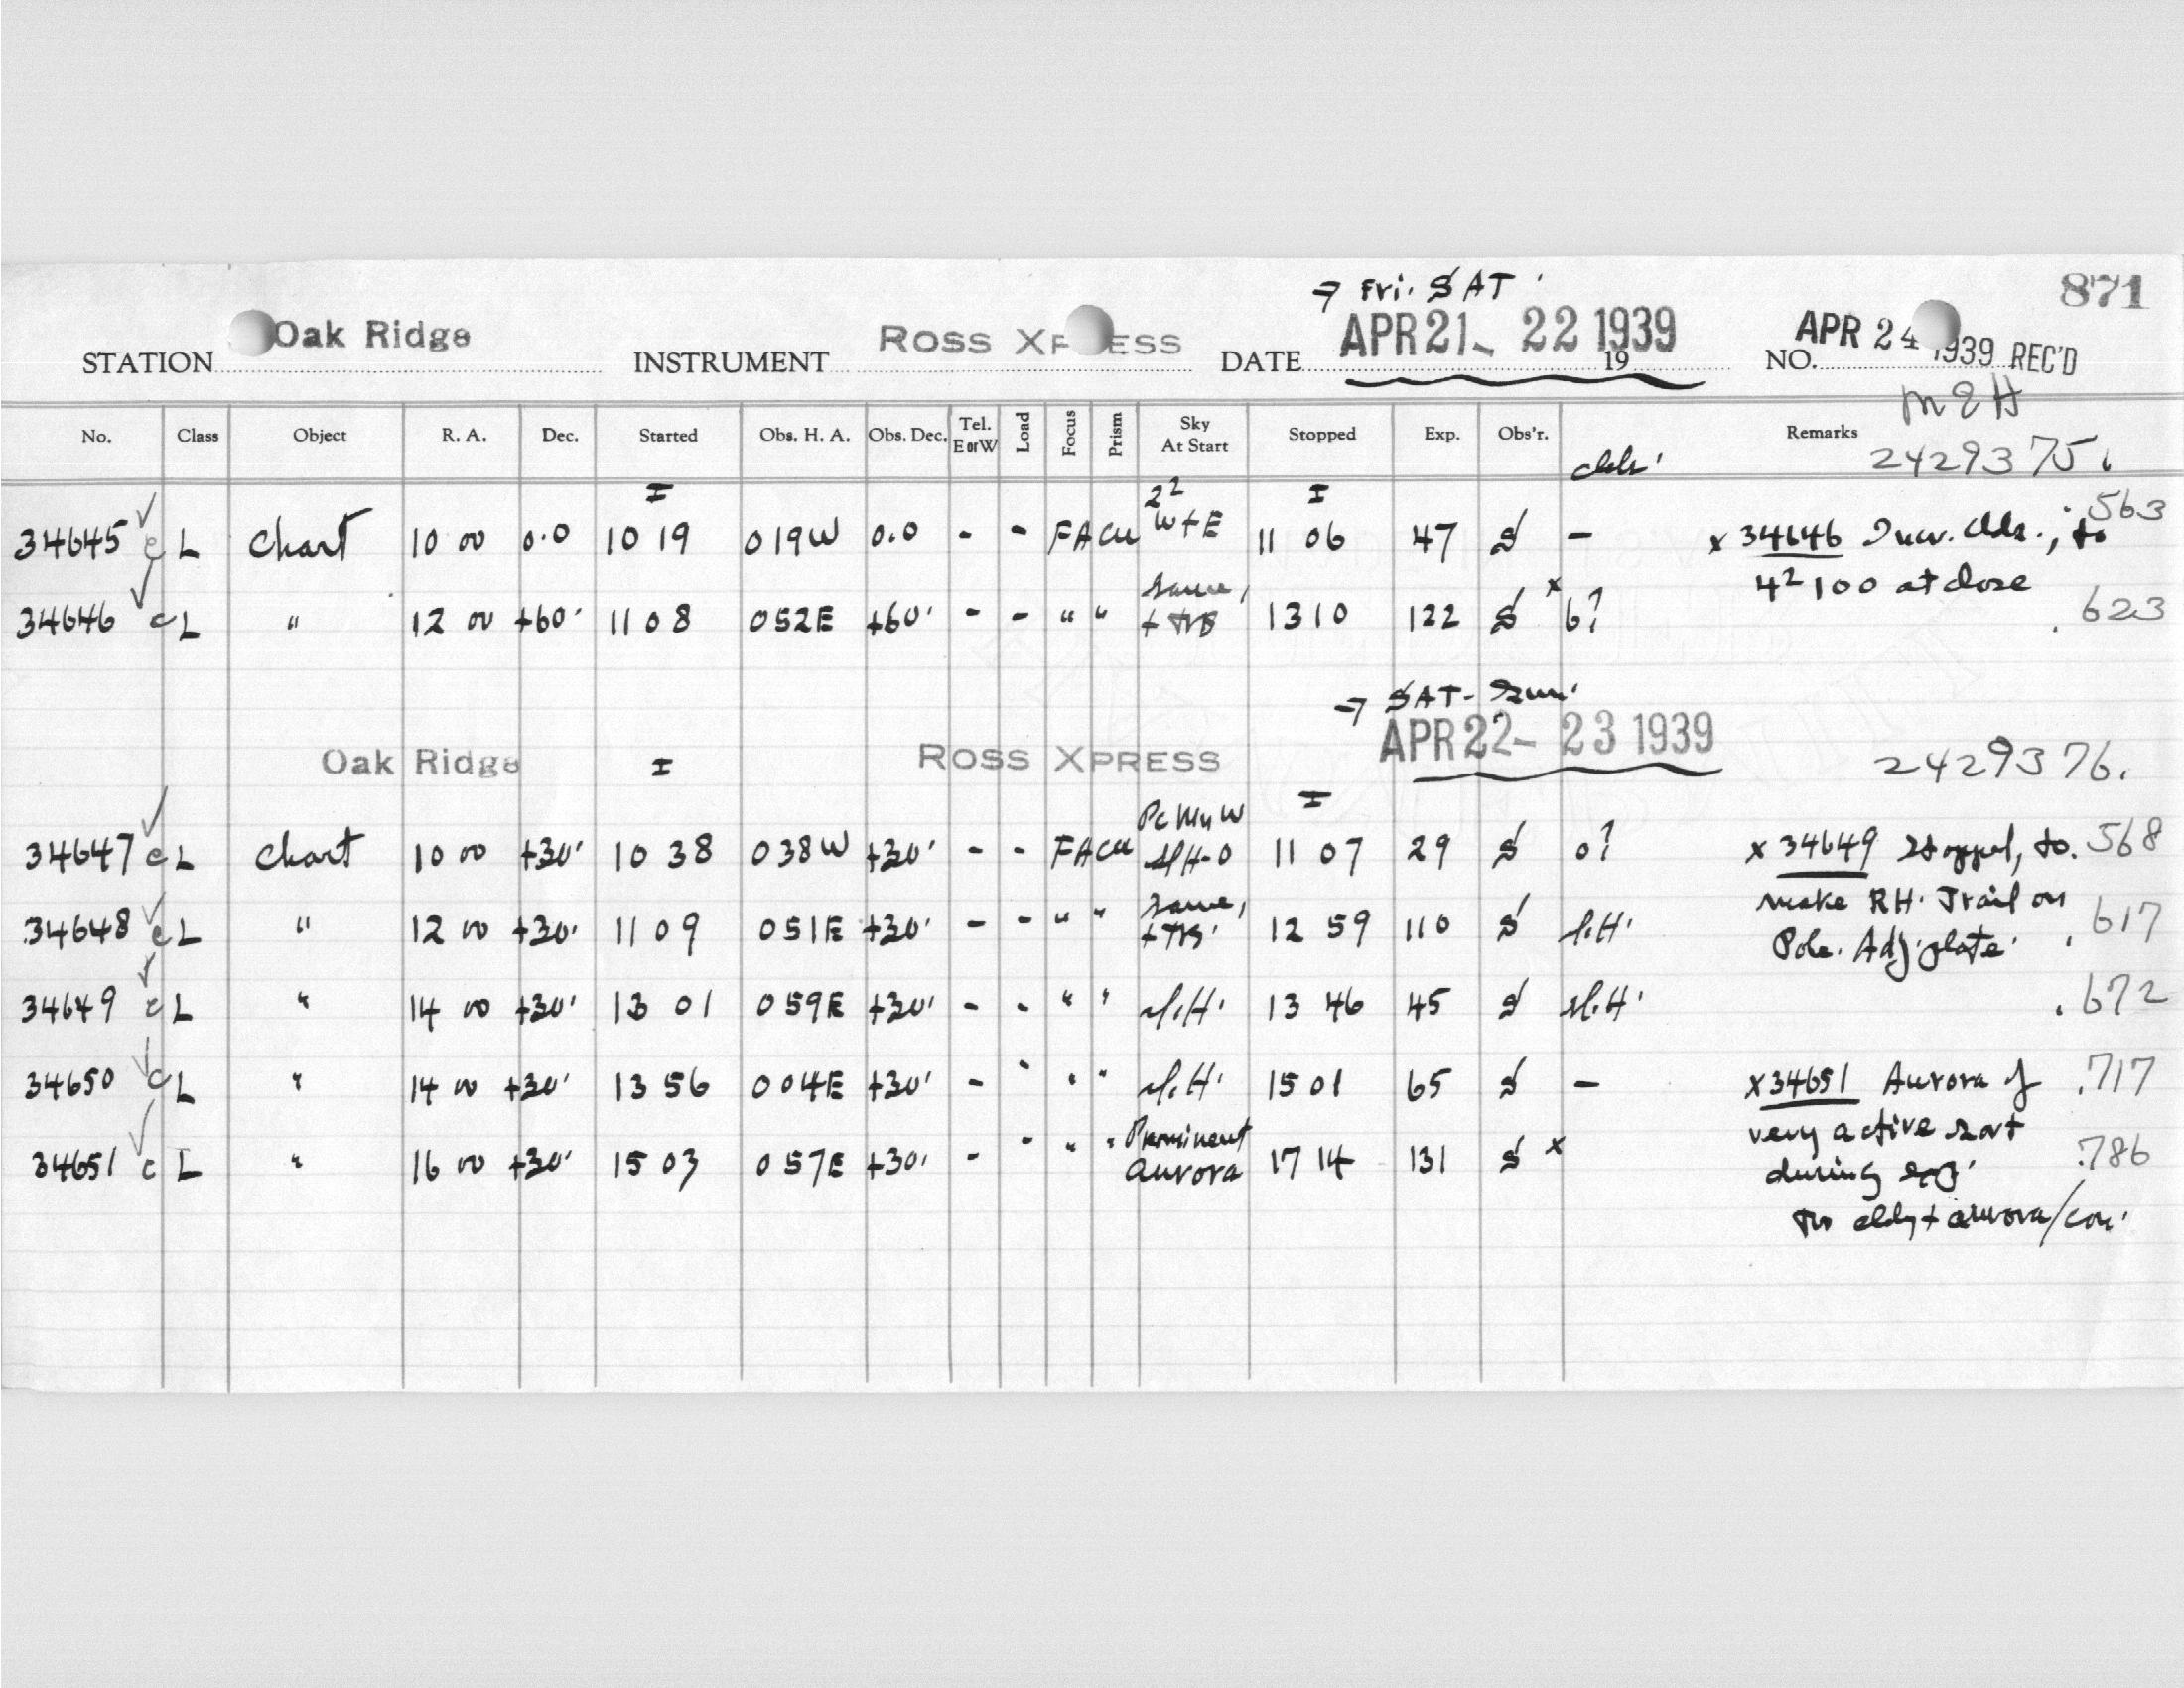 → Fri. SAT.
871
STATION Oak Ridge INSTRUMENT ROSS XPRESS DATE APR 21- 22 1939 19 NO. APR 24 1939 REC'D
No. Class Object R. A. Dec. Started Obs. H. A. Obs. Dec. Tel. E or W Load Focus Prism Sky At Start Stopped Exp. Obs'r. Remarks
2429375.
I 2² I
34645 c L Chart 10 00 0.0 10 19 019W 0.0 - - FA CU W+E 11 06 47 S - x 34646 Incr. clds., to .563
4² 100 at close
34646 c L " 12 00 +60' 11 08 052E +60' - - " " same, 13 10 122 S x b? .623
→ SAT-Sun.
Oak Ridge I ROSS XPRESS APR 22- 23 1939 2429376.
I
34647 c L Chart 10 00 +30' 10 38 038W +30' - - FA CU 11 07 29 S o? x 34649 Stopped, to .568
make RH. Trail on
34648 c L " 12 00 +30' 11 09 051E +30' - - " " same, 12 59 110 S Sl.H. .617
Pole. Adj. plate.
34649 c L " 14 00 +30' 13 01 059E +30' - - " " Sl.H. 13 46 45 S Sl.H. .672
34650 c L " 14 00 +30' 13 56 004E +30' - - " " Sl.H. 15 01 65 S - x 34651 Aurora of .717
very active sort
34651 c L " 16 00 +30' 15 03 057E +30' - - " " Prominent aurora 17 14 131 S x .786
during exp.
cldy + aurora/con.